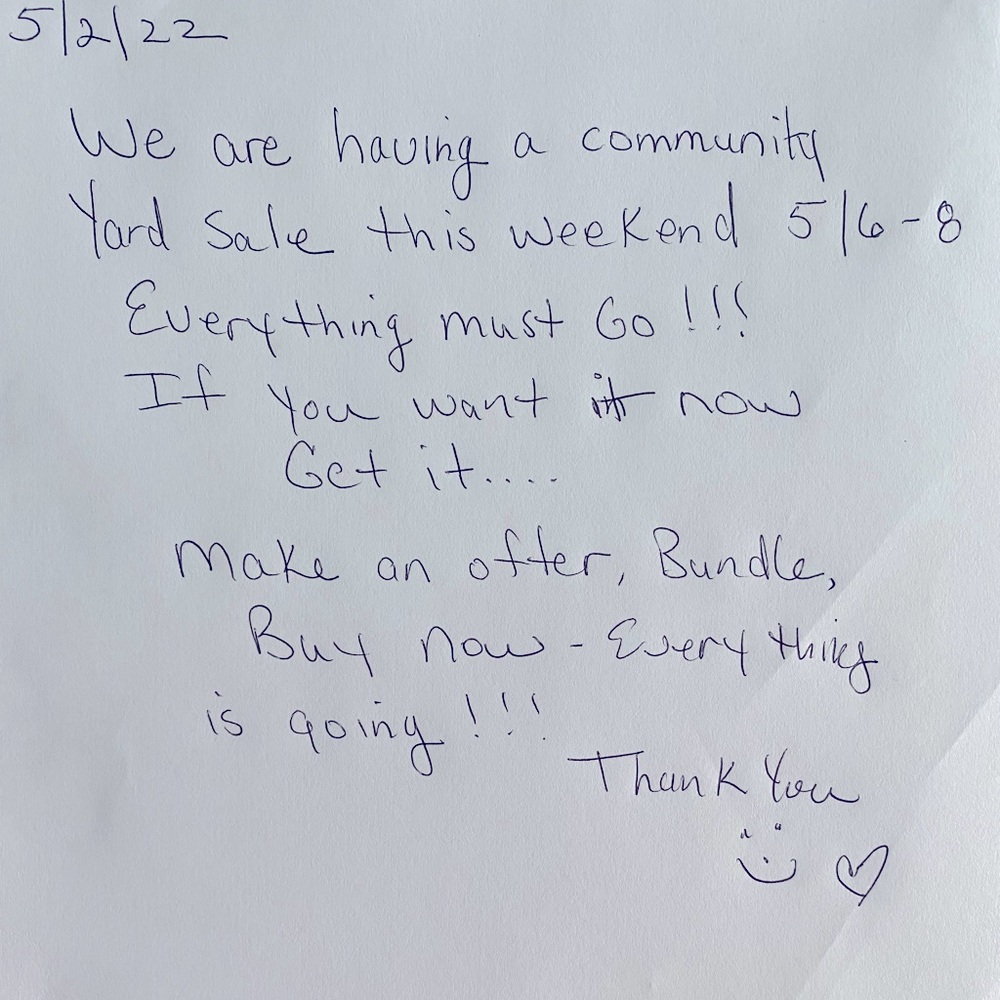 5/2/22
We are having a community
Yard Sale this weekend 5/6-8
Everything must Go !!!
If you want it now
Get it....
Make an offer, Bundle,
Buy now - Everything
is going !!!
Thank You